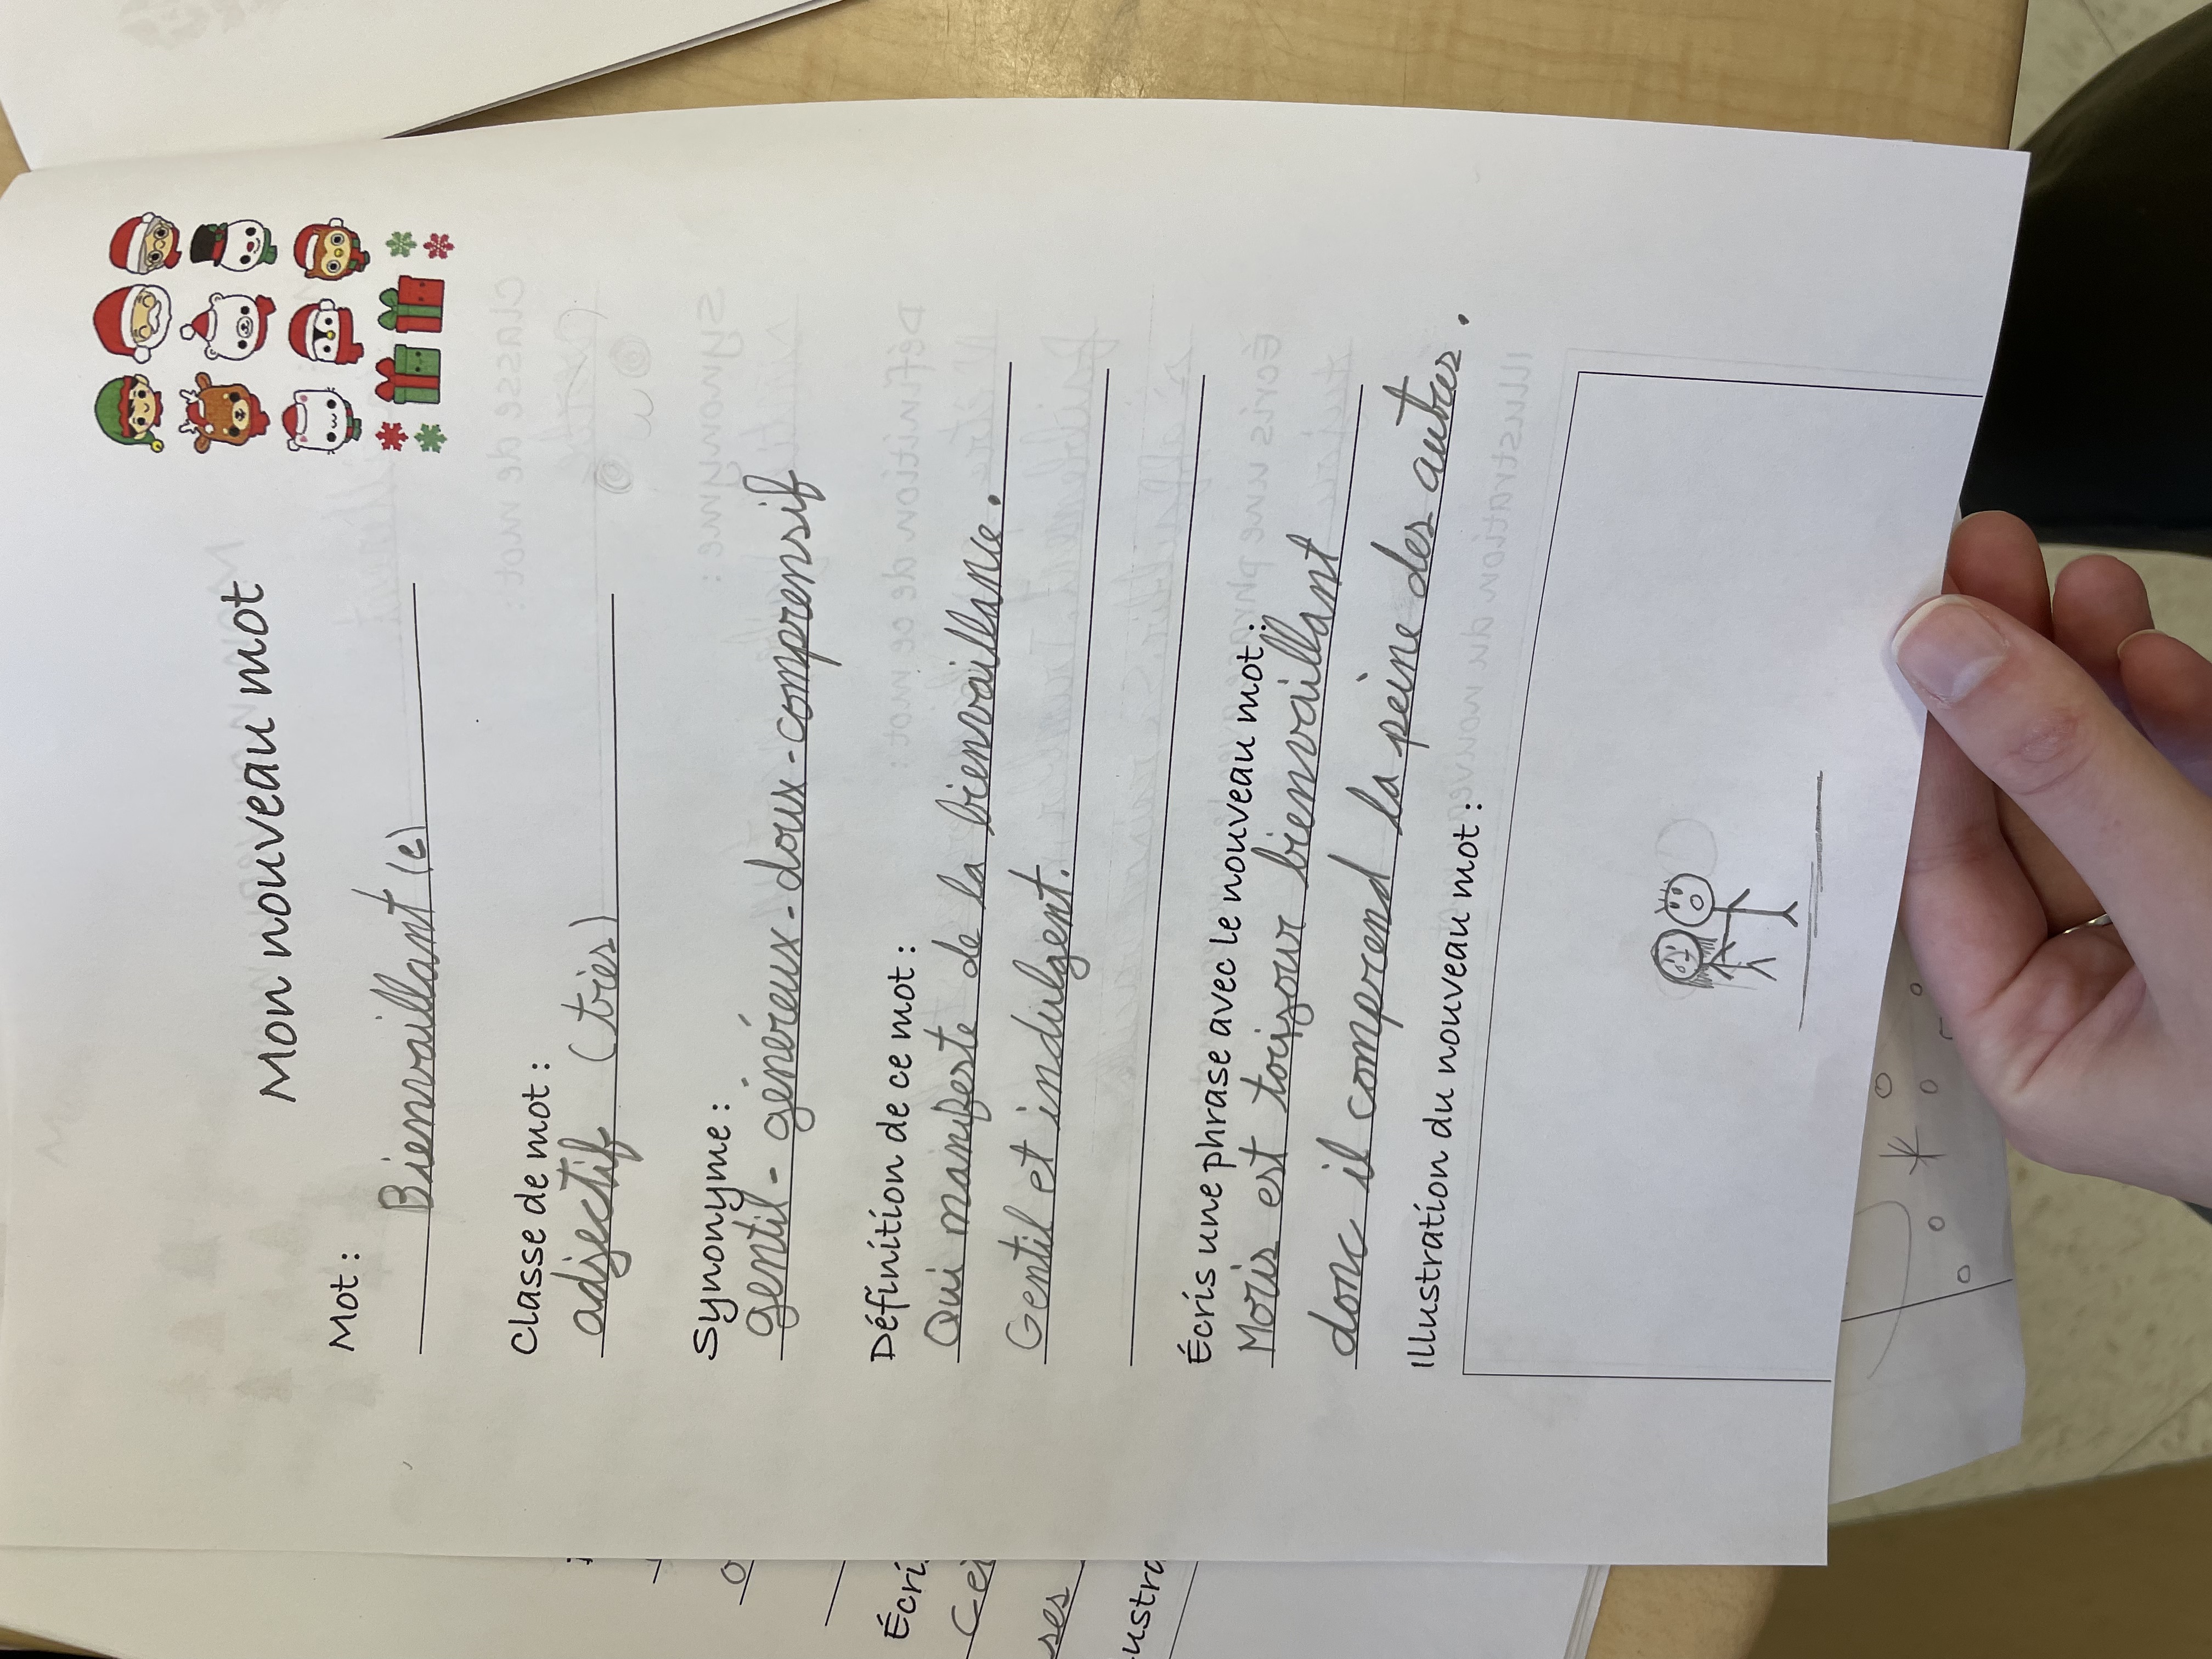 Mon nouveau mot
Mot :
Bienvaillant (e)
Classe de mot :
adjectif (très)
Synonyme :
gentil - généreux - doux - comprensif
Définition de ce mot :
Qui manifeste de la bienvaillance.
Gentil et indulgent.
Écris une phrase avec le nouveau mot :
est toujour bienvaillant
donc il comprend la peine des autres.
Illustration du nouveau mot :
Écri
ses
ustra